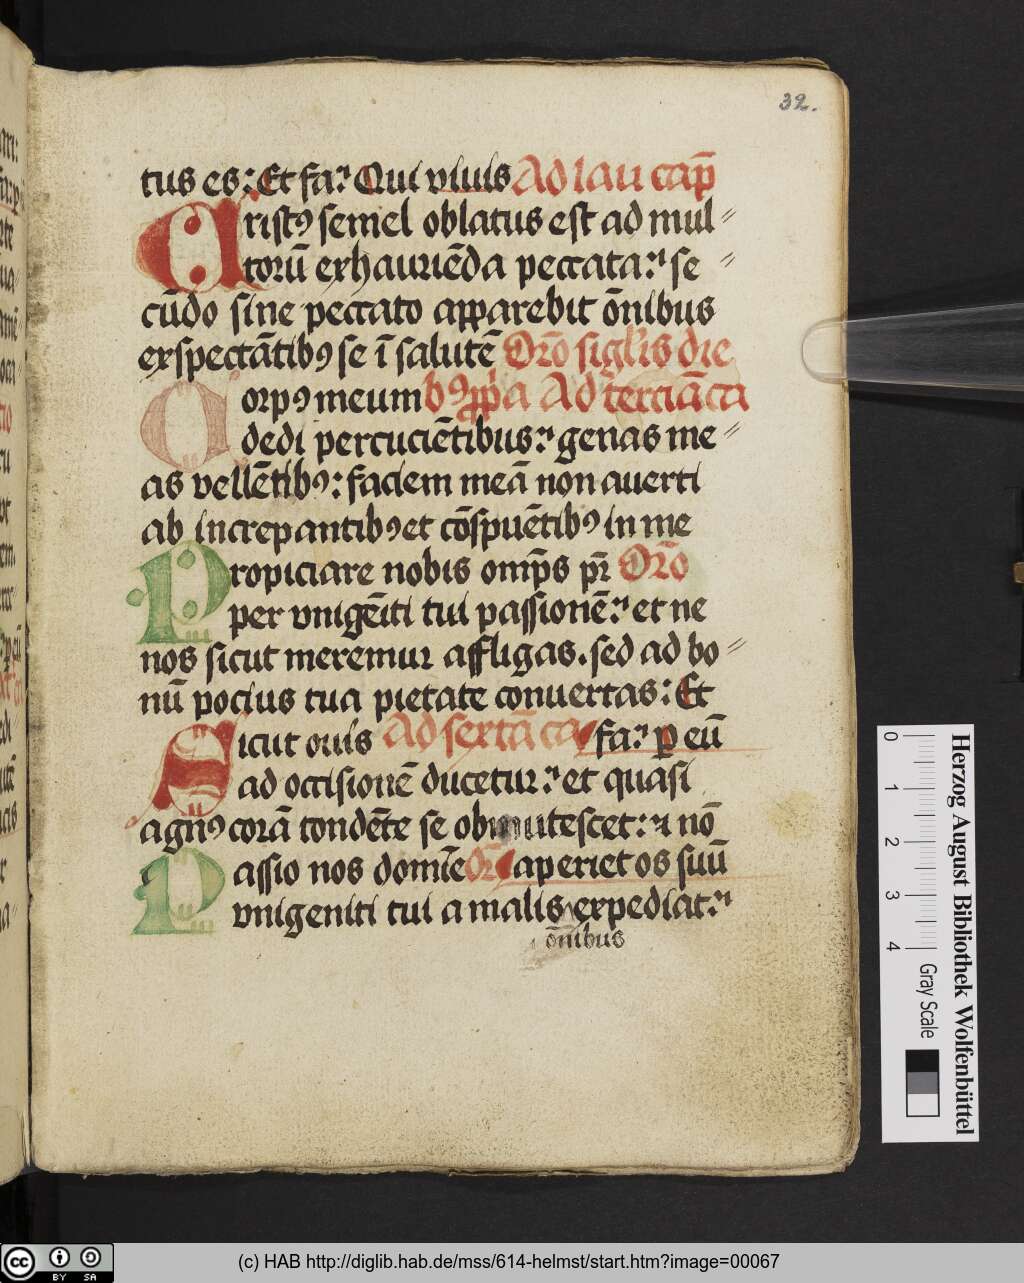 32.
tus es: Et fa? Qui viuis Ad lau cap̄
Cristꝯ semel oblatus est ad mul⸗
torū exhauriēda peccata:? se⸗
cūdo sine peccato apparebit ōnibus
exspectātibꝯ se ī salutē Orō siglis die
Corpꝯ meum bꝯ Ad terciā ca
dedi percuciētibus:? genas me⸗
as vellētibꝯ: faciem meā non auerti
ab increpantibꝯ et cōspuētibꝯ in me
Propiciare nobis omp̄s pr̄ Orō
per vnigēiti tui passionē:? et ne
nos sicut meremur affligas. sed ad bo⸗
nū pocius tua pietate conuertas: Et
Sicut ouis Ad sextā ca fa? ꝑ eū
ad occisionē ducetur:? et quasi
agnꝯ corā tondēte se obmutescet: ⁊ nō
Passio nos domīe Or̄ aperiet os suū
vnigeniti tui a malis expediat:?
ōnibus
0
1
2
3
4
Gray Scale
Herzog August Bibliothek Wolfenbüttel
cc BY SA
(c) HAB http://diglib.hab.de/mss/614-helmst/start.htm?image=00067